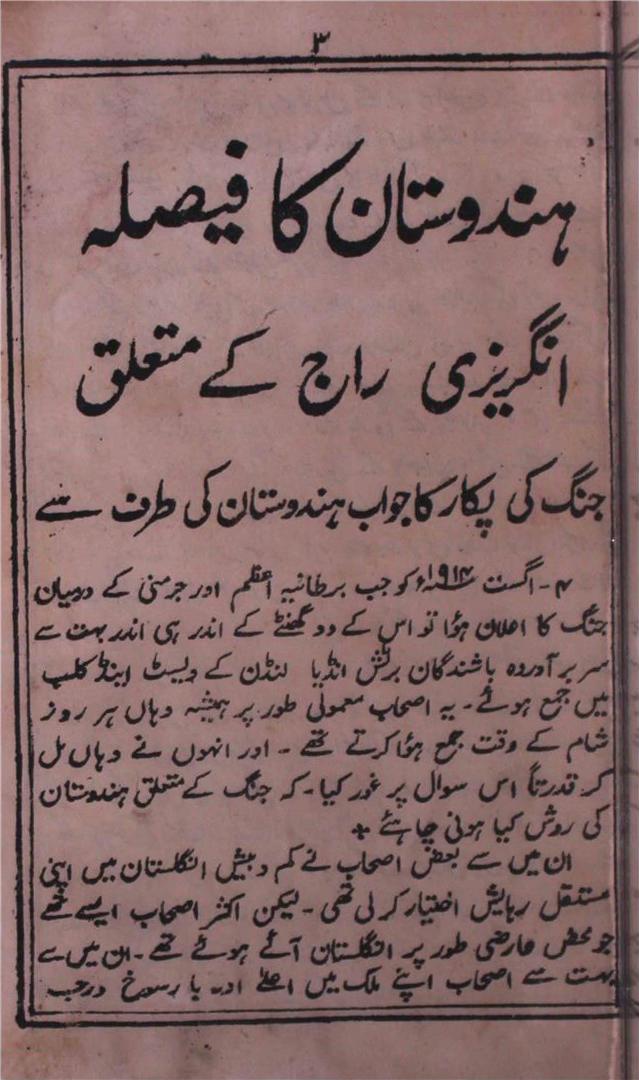 ۳
ہندوستان کا فیصلہ
انگریزی راج کے متعلق
جنگ کی پکار کا جواب ہندوستان کی طرف سے
۴ - اگست ۱۹۱۴ء کو جب برطانیہ اعظم اور جرمنی کے درمیان
جنگ کا اعلان ہؤا تو اس کے دو گھنٹے کے اندر ہی اندر بہت سے
سربرآوردہ باشندگان برٹش انڈیا لنڈن کے ویسٹ اینڈ کلب
میں جمع ہوئے ۔ یہ اصحاب معمولی طور پر ہمیشہ وہاں ہر روز
شام کے وقت جمع ہؤا کرتے تھے ۔ اور انہوں نے وہاں مل
کر قدرتاً اس سوال پر غور کیا ۔ کہ جنگ کے متعلق ہندوستان
کی روش کیا ہونی چاہئے +
ان میں سے بعض اصحاب نے کم و بیش انگلستان میں اپنی
مستقل رہایش اختیار کر لی تھی ۔ لیکن اکثر اصحاب ایسے تھے
جو محض عارضی طور پر انگلستان آئے ہوئے تھے ۔ ان میں سے
بہت سے اصحاب اپنے ملک میں اعلےٰ اور با رسوخ درجہ